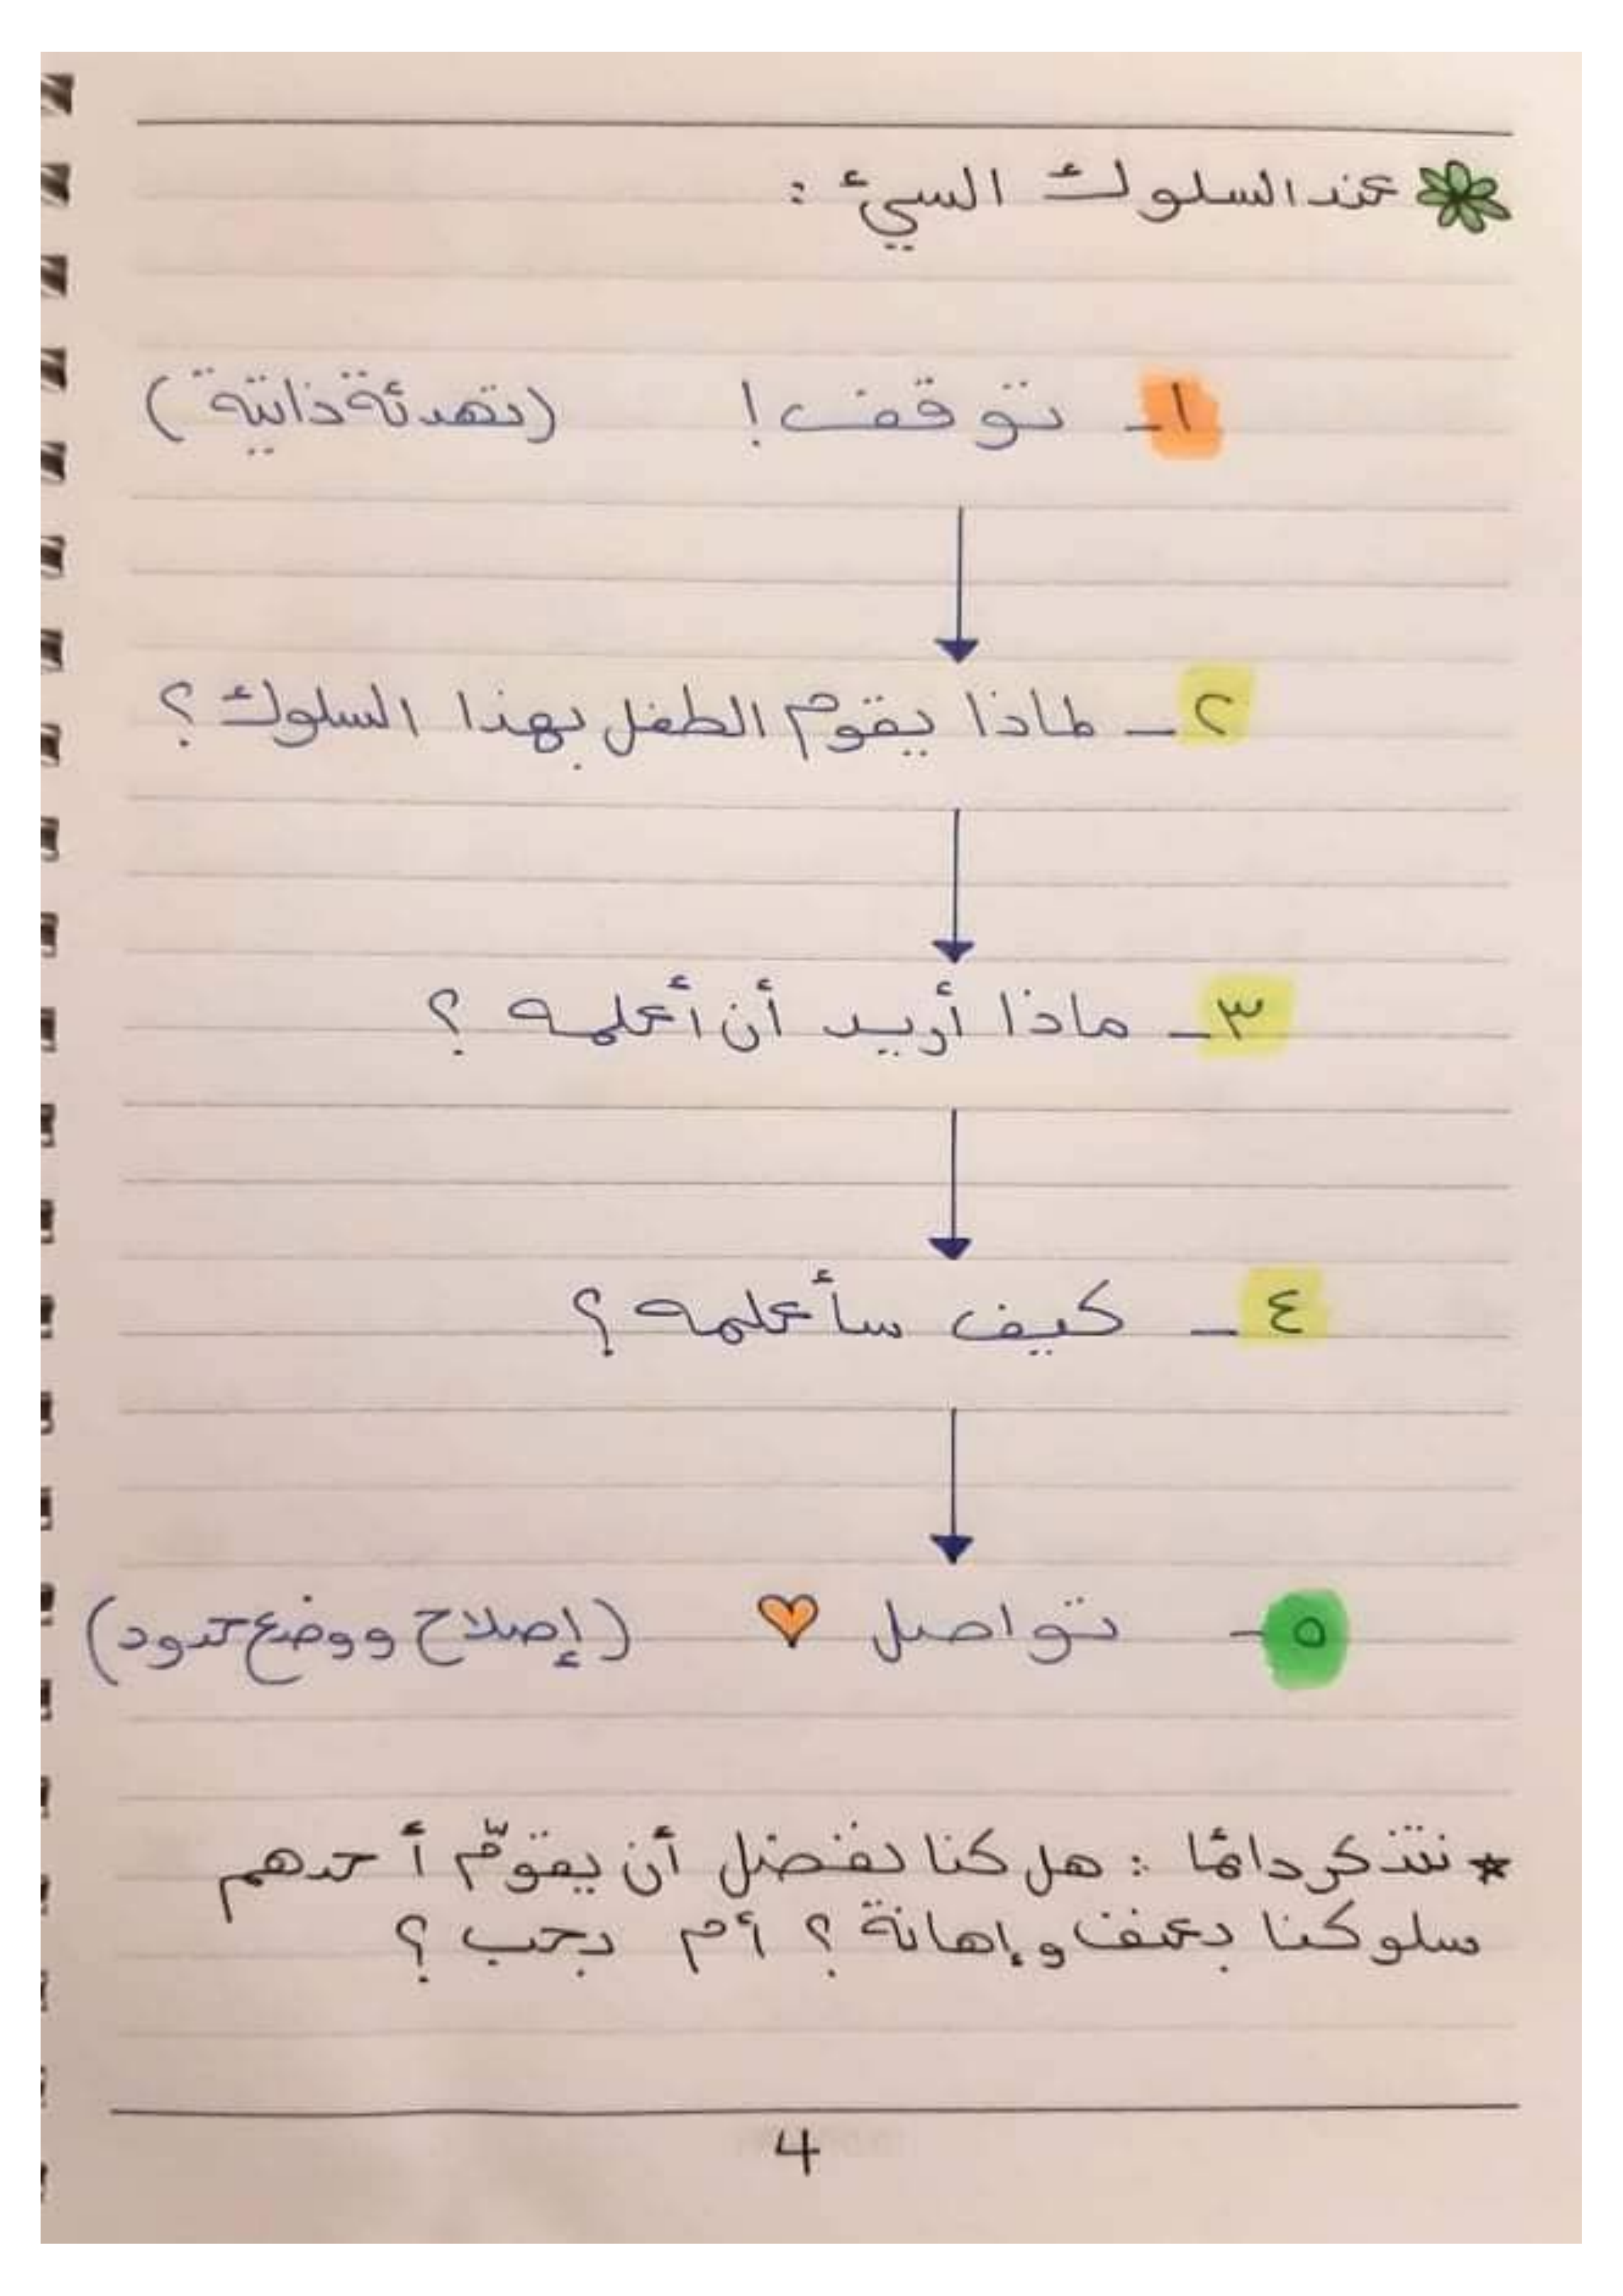 عند السلوك السيئ :
١- توقف ! (تهدئة ذاتية)
٢- لماذا يقوم الطفل بهذا السلوك ؟
٣- ماذا أريد أن أعلمه ؟
٤- كيف سأعلمه ؟
٥- تواصل (إصلاح ووضع حدود)
* نتذكر دائمًا : هل كنا نفضل أن يقوّم أحدهم
سلوكنا بعنف وإهانة ؟ أم بحب ؟
4